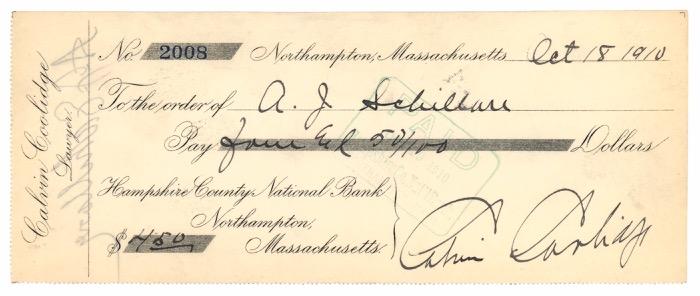 No. 2008 Northampton, Massachusetts Oct 18 1910
To the order of A. J. Schillare
Pay Four & 50/100 Dollars
Hampshire County National Bank
Northampton,
Massachusetts.
$4.50
Calvin Coolidge
Calvin Coolidge
Lawyer.
PAID